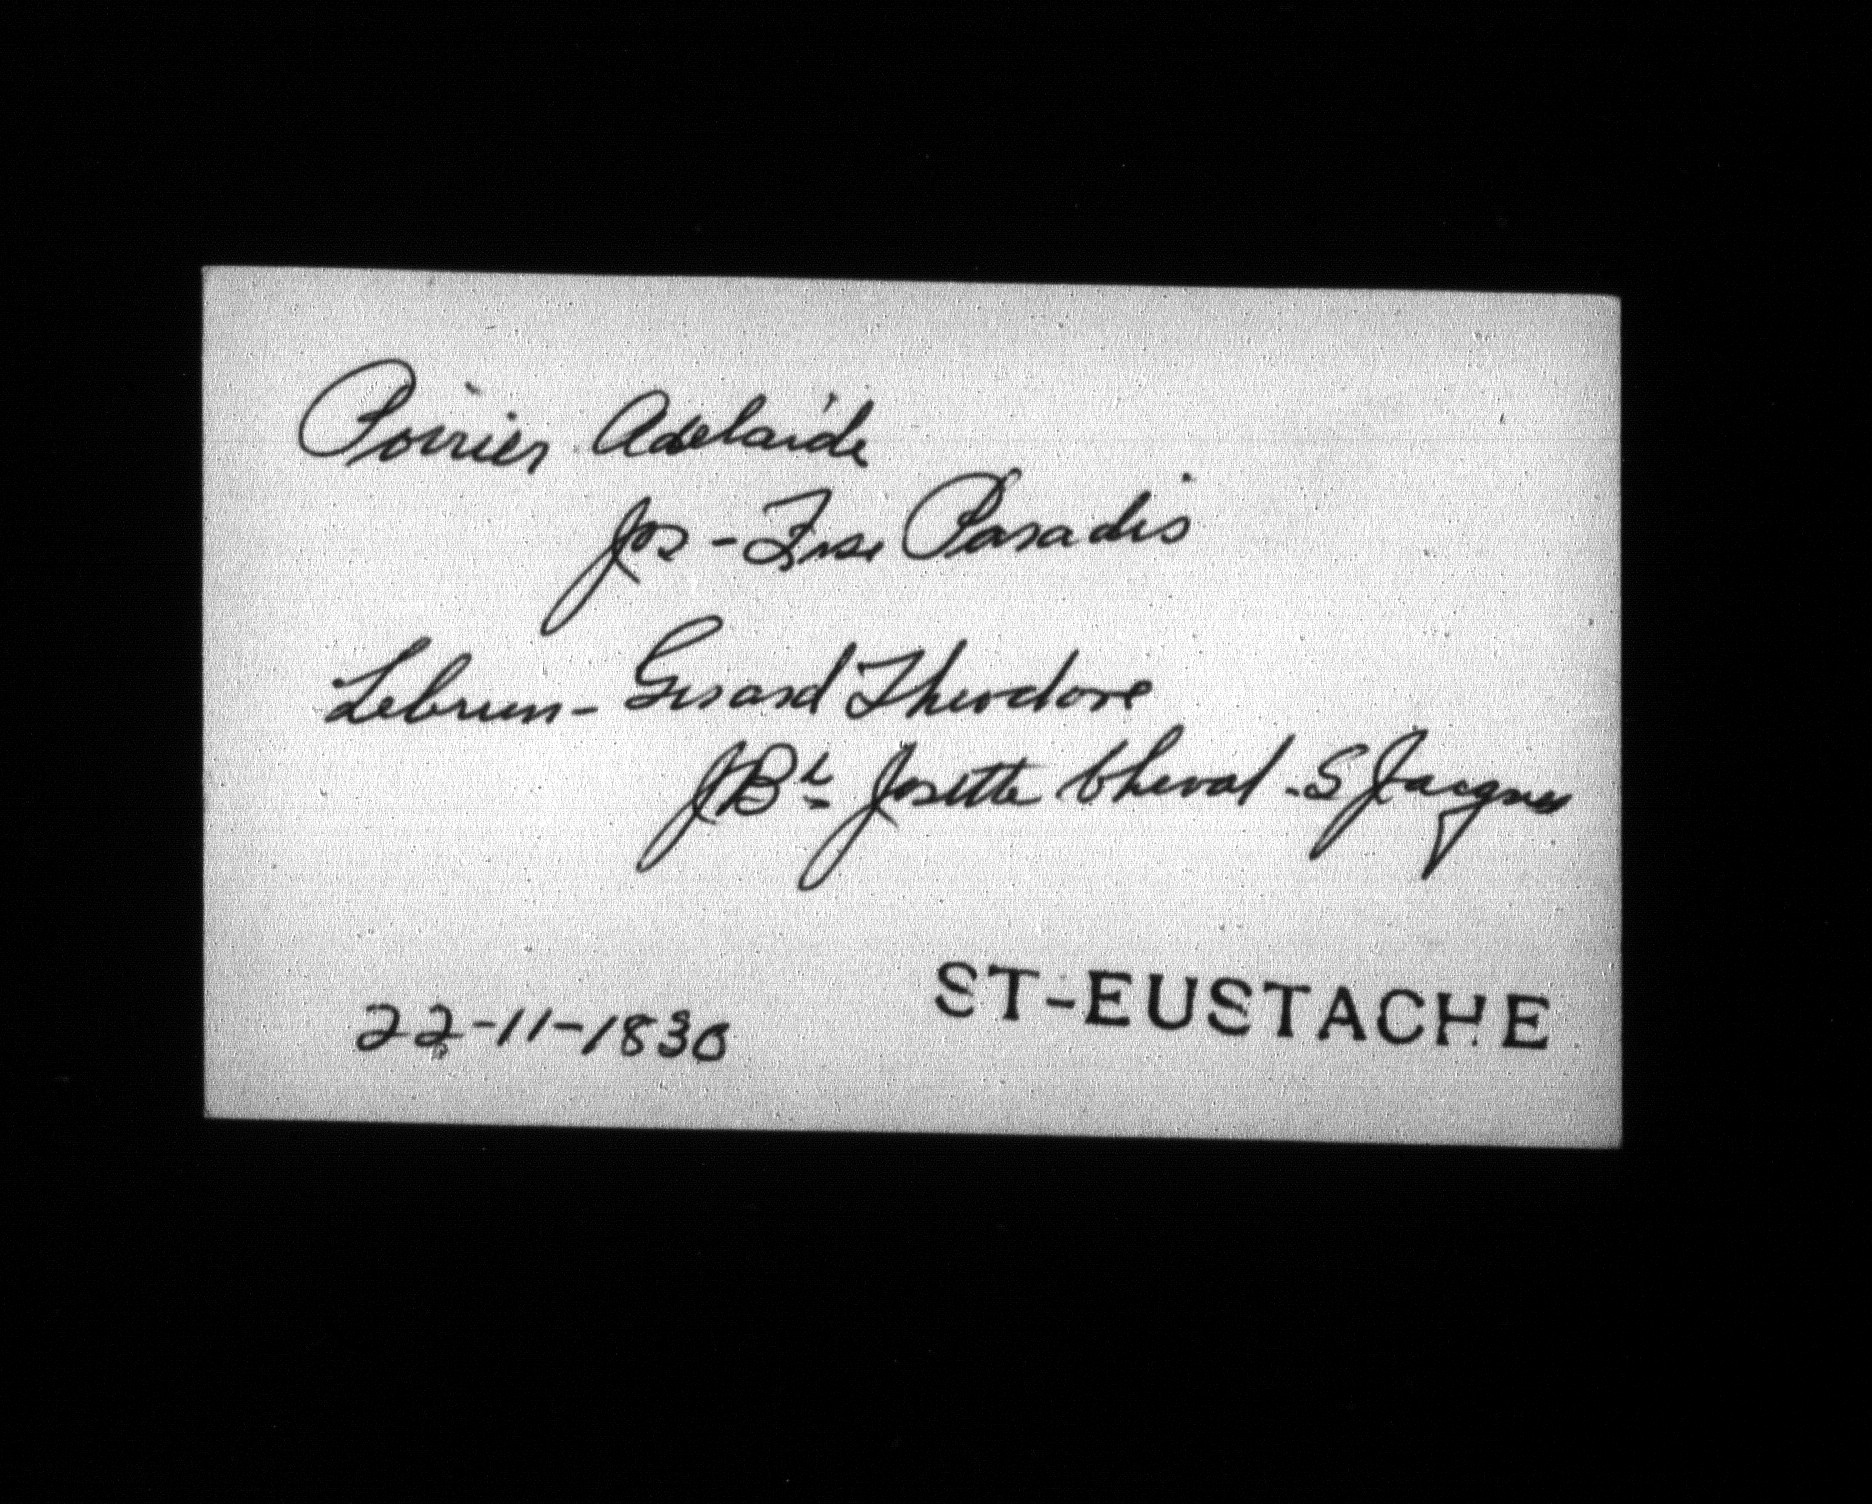 Poirier Adelaide
Jos - Frse Paradis
Lebrun - Gerard Theodore
JBt Josette Cheval - S Jacques
22-11-1830
ST-EUSTACHE